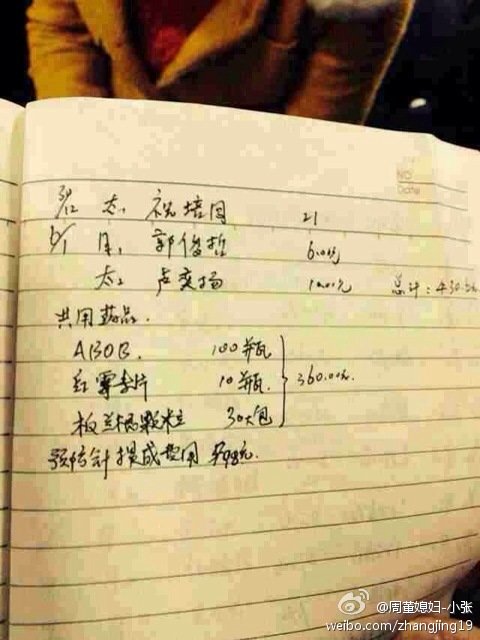 NO
Date
太 祝培同 21
6/1 月 郭俊哲 6.00元
太 卢奕扬 总计:430
共用药品.
ABOB. 100瓶
红霉素片 10瓶. 360.00元.
板兰根颗粒 30大包
预防针提成费用
@周董媳妇-小张
weibo.com/zhangjing19